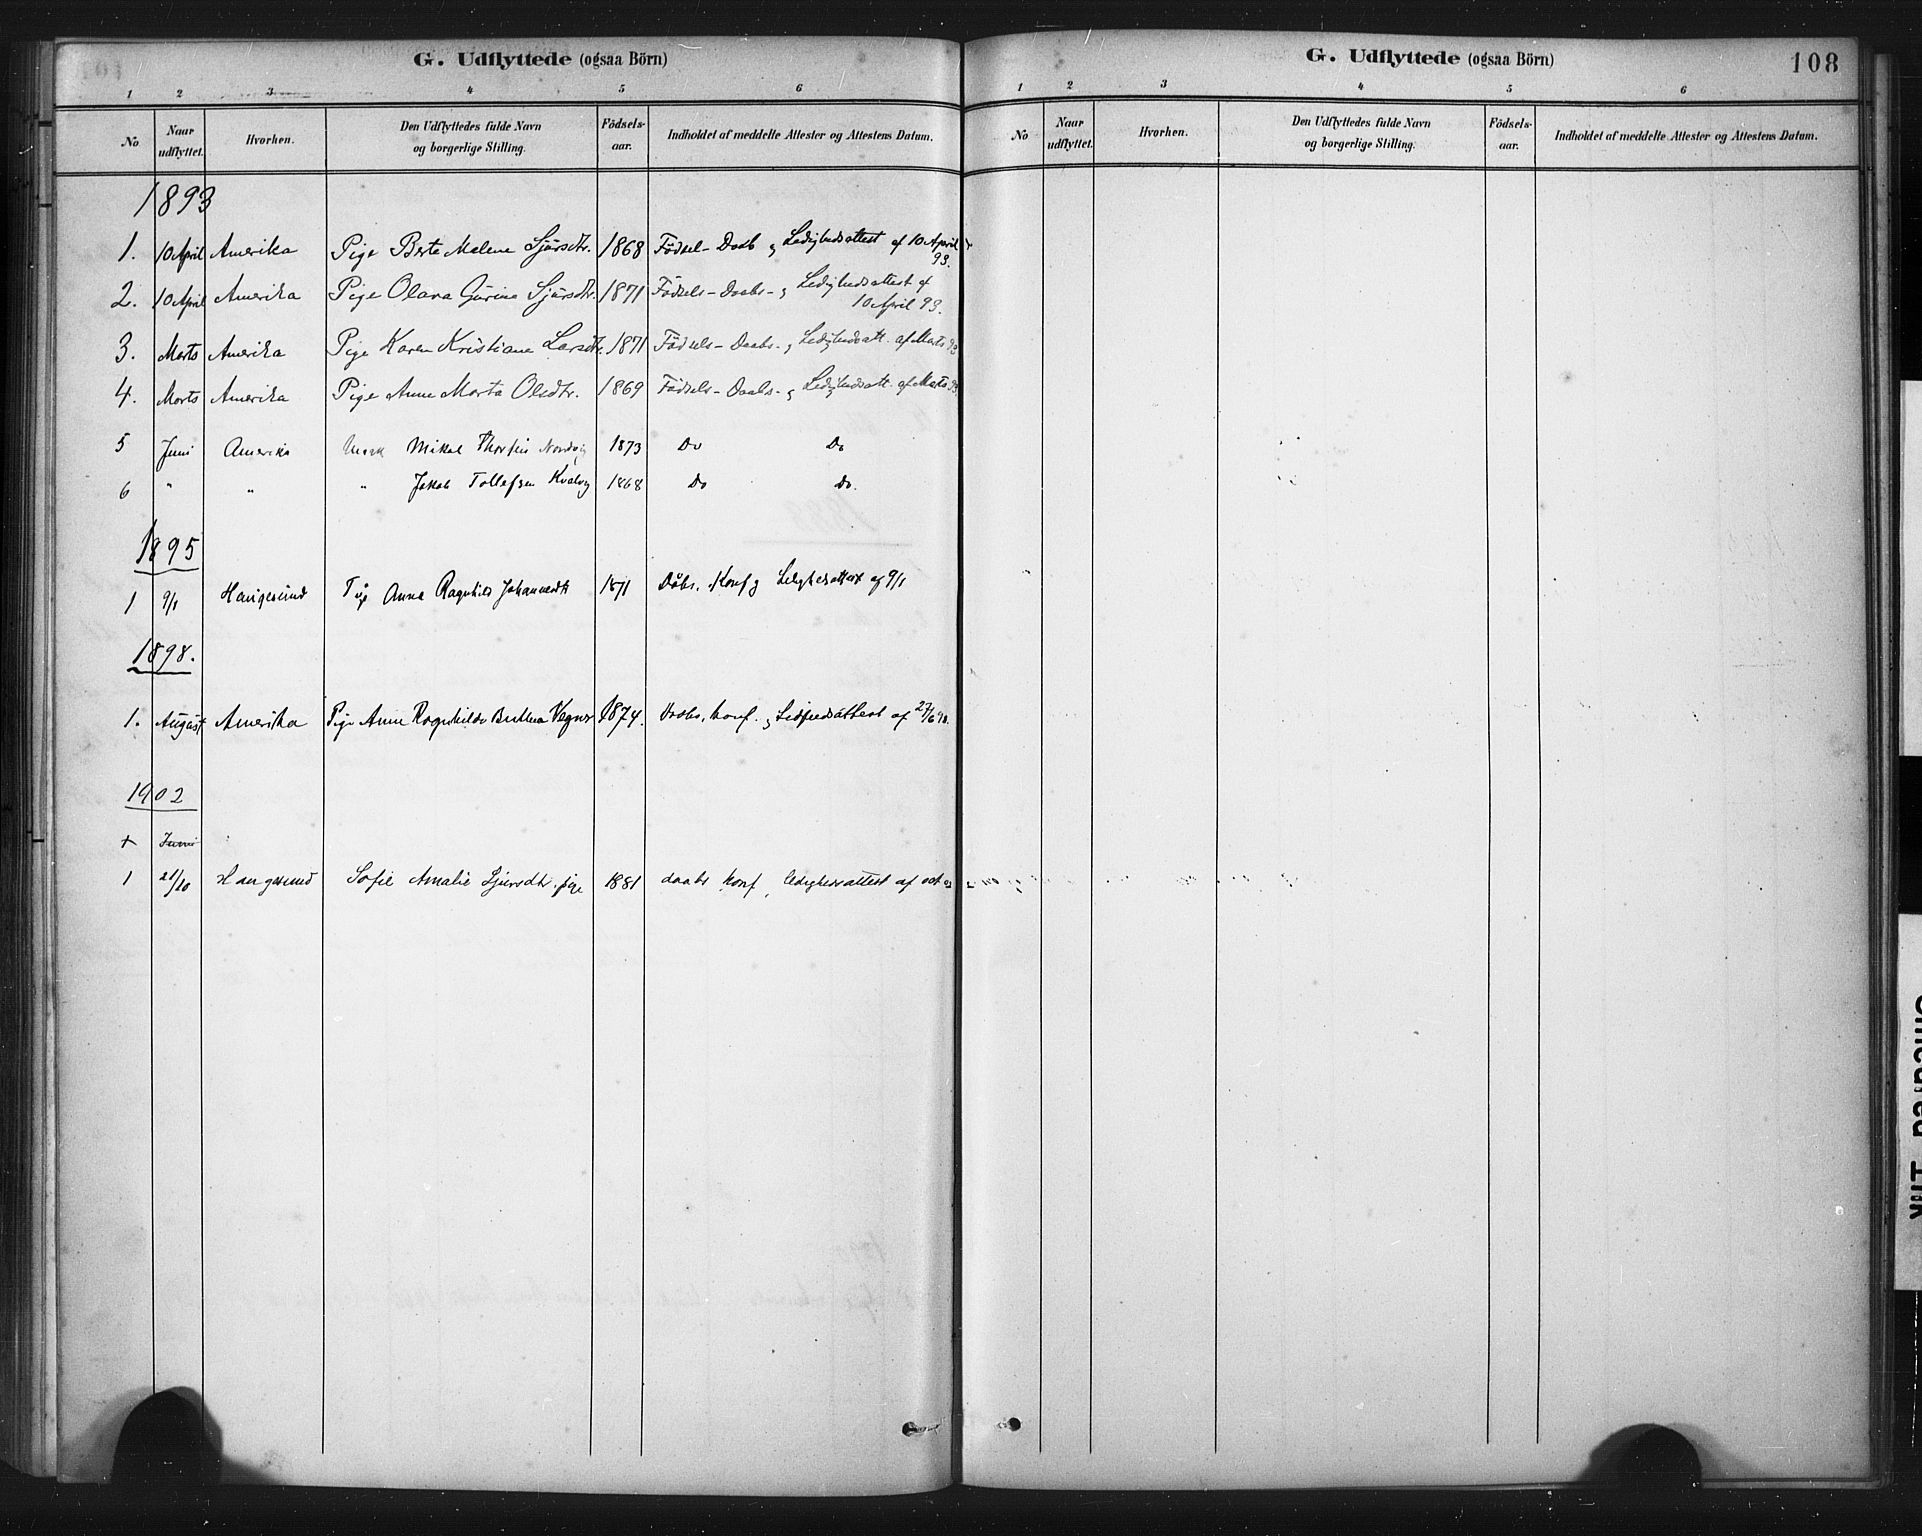 G. Udflyttede (ogsaa Börn)
1 2 3 4 5 6
No Naar udflyttet. Hvorhen. Den Udflyttedes fulde Navn og borgerlige Stilling. Födsels-aar. Indholdet af meddelte Attester og Attestens Datum.
1893
1. 10 April Amerika Pige Berte Malene Sjursdtr. 1868 Födsel- Daab og Ledighedsattest af 10 April 93.
2. 10 April Amerika Pige Olava Gurine Sjursdtr 1871 Födsels- Daabs- og Ledighedsattest af
10 April 93.
3. Marts Amerika Pige Karen Kristiane Larsdtr. 1871 Födsels- Daabs- og Ledighedsatt. af Marts 93
4. Marts Amerika Pige Anne Marta Olsdtr. 1869 Födsels- Daabs- og Ledighedsatt. af Marts 93.
5 Juni Amerika Mikal Thorsen 1873 Do Do
6 " " " Jakob Tollefsen Kvalvig 1868 Do Do.
1895
1 9/1 Haugesund Pige Anna Ragnhild Johannesdtr 1871 Dåbs, Konf og Ledighedsattest af 9/1
1898.
1. August Amerika Pige Anne Ragnhilde 1874. Daabs, konf. og af 27/6 98.
1902
+ Juni
1 21/10 Haugesund Sofie Amalie Sjursdtr. pige 1881 daabs konf, ledighedsattest af oct 02
G. Udflyttede (ogsaa Börn)
108
1 2 3 4 5 6
No Naar udflyttet. Hvorhen. Den Udflyttedes fulde Navn og borgerlige Stilling. Födsels-aar. Indholdet af meddelte Attester og Attestens Datum.